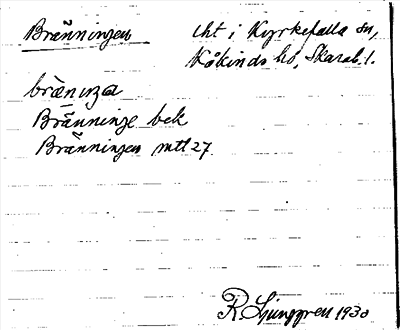 Bränningen
tht i Kyrkefalla sn,
Kåkinds hd, Skarab. l.
bräniŋa
Bränninge bek
Bränningen mtl 27
R. Ljunggren 1930